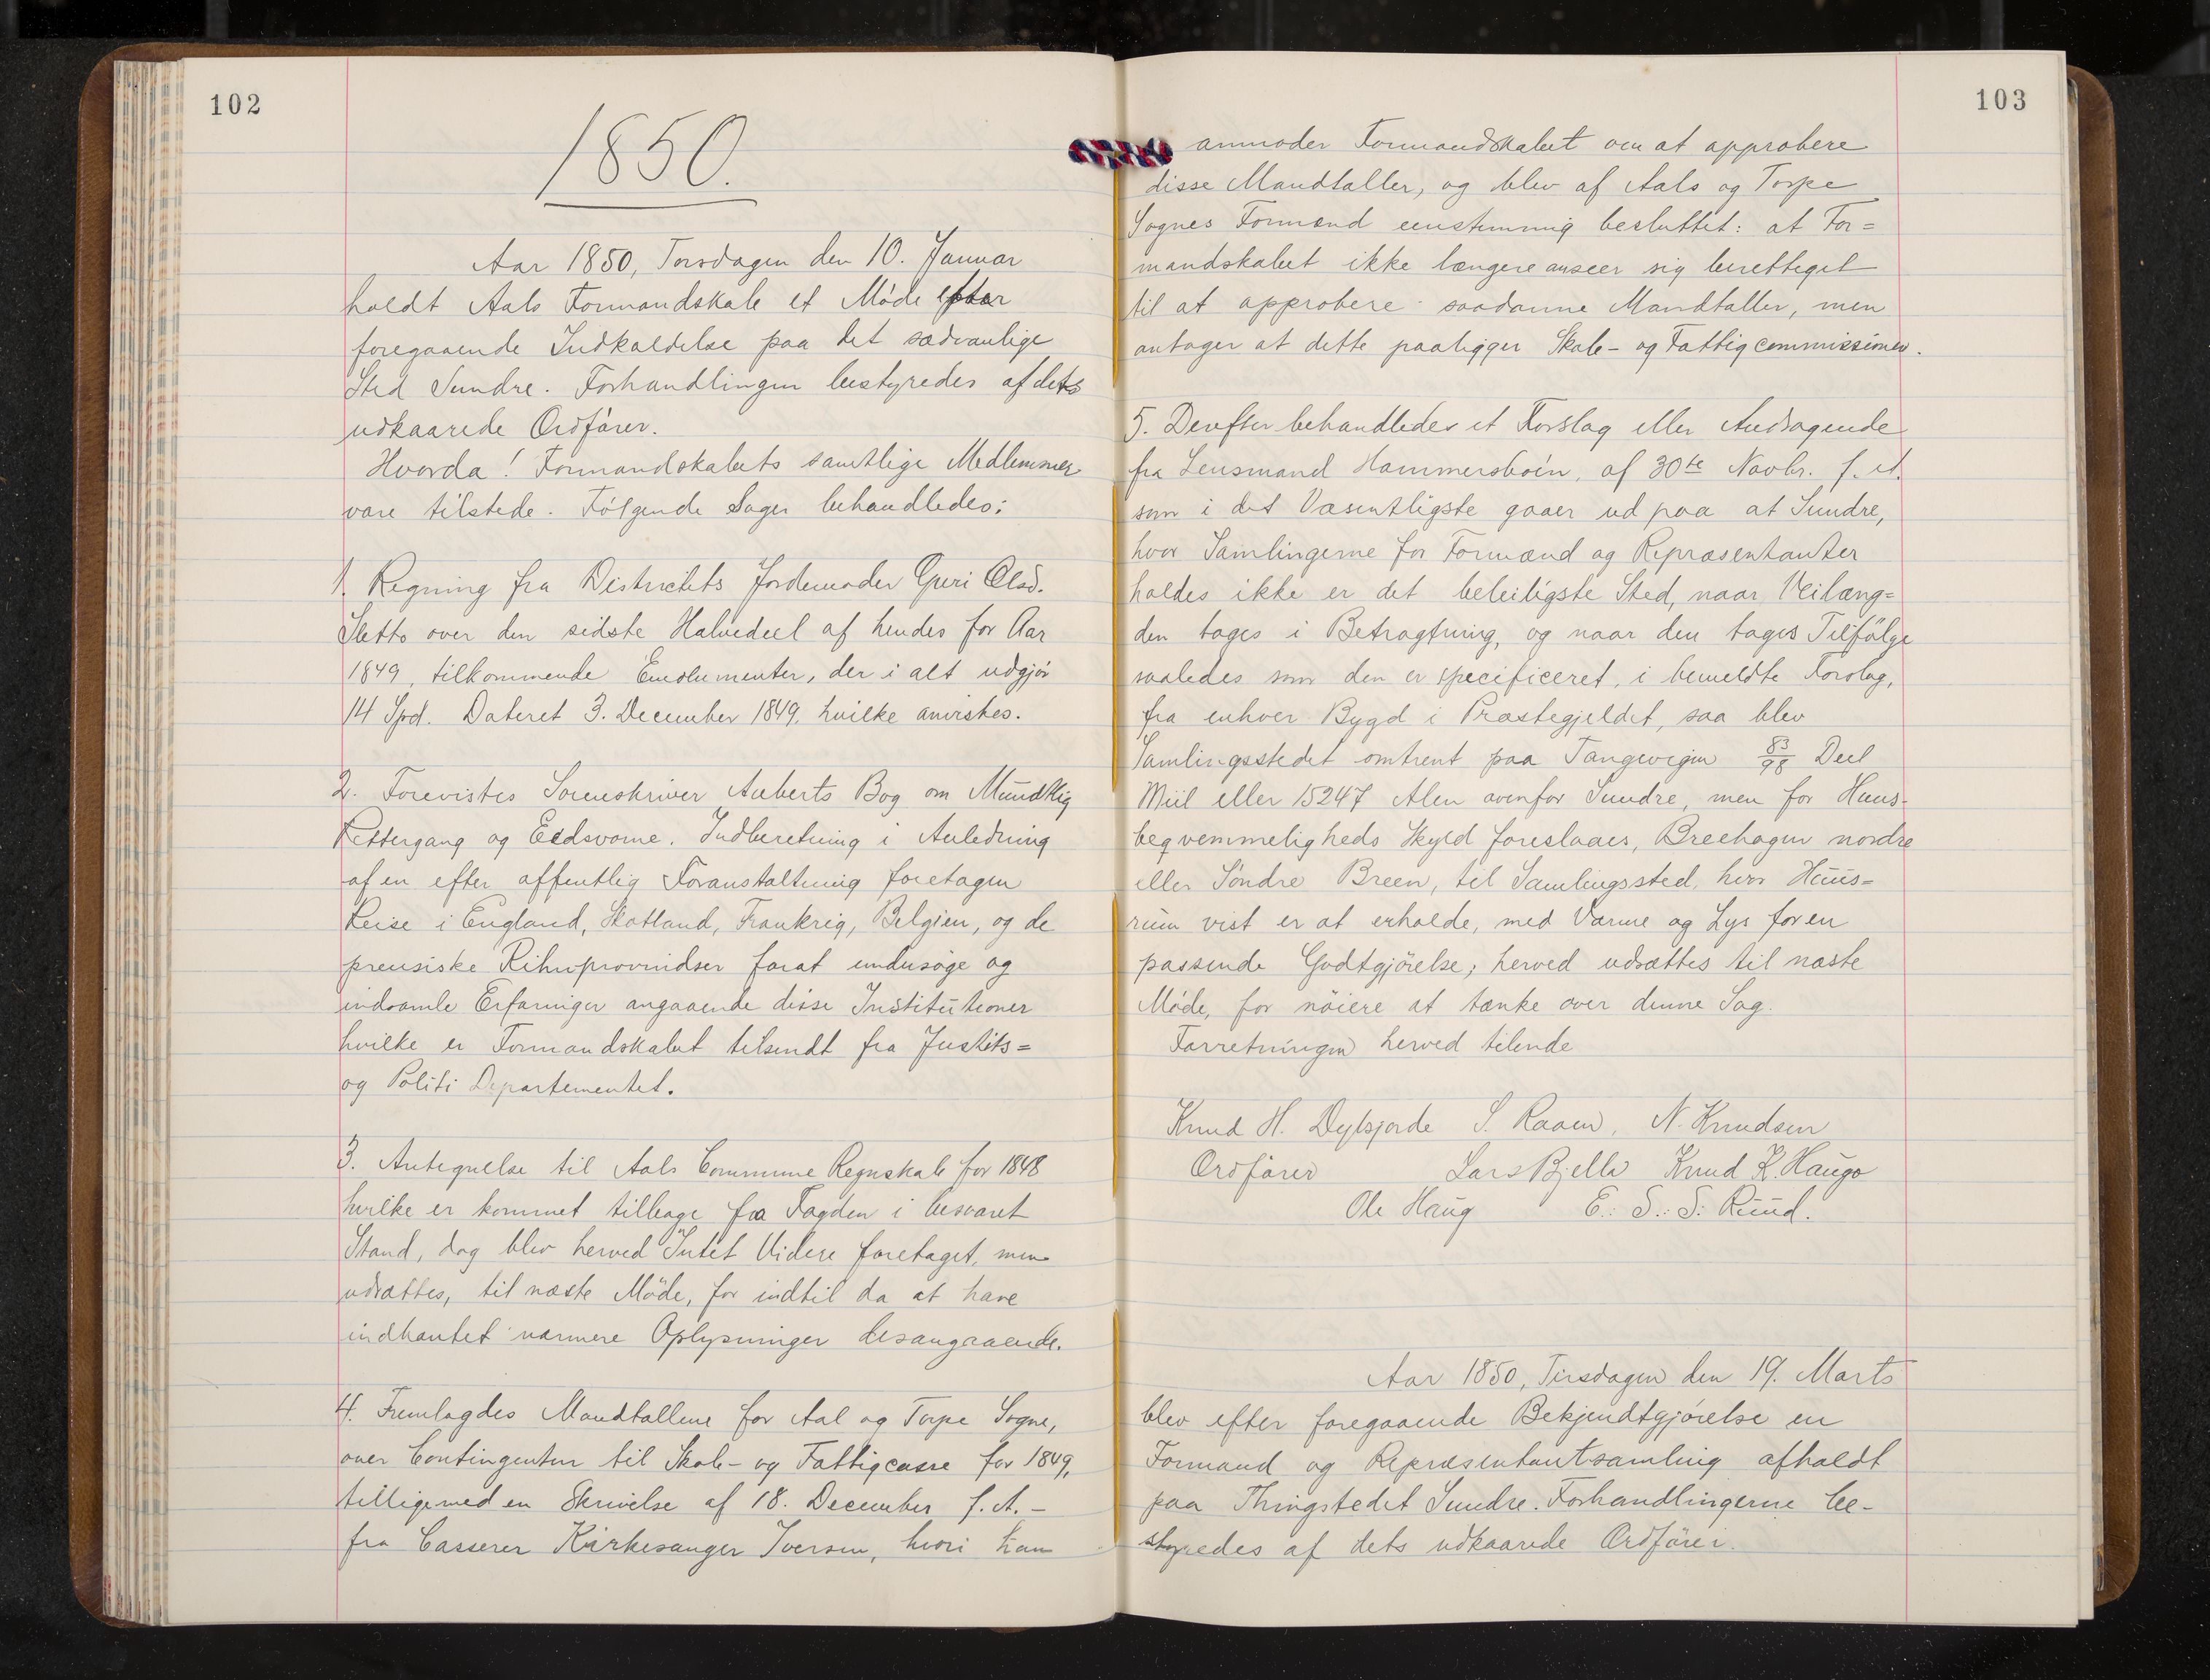 102
1850.
Aar 1850, Torsdagen den 10. Januar
holdt Aals Formandskab et Møde efter
foregaaende Indkaldelse paa det sædvanlige
Sted Sundre. Forhandlingen bestyredes af dets
udkaarede Ordfører.
Hvorda! Formandskabets samtlige Medlemmer
vare tilstede. Følgende Sager behandledes:
1. Regning fra Districtets Jordemoder Guri Olsd.
Sletto over den sidste Halvedeel af hendes for Aar
1849, tilkommende Emolumenter, der i alt udgjør
14 Spd. Dateret 3. December 1849, hvilke anvistes.
2. Forevistes Sorenskriver Auberts Bog om Mundtlig
Rettergang og Eedsvorne. Indberetning i Anledning
af en efter offentlig Foranstaltning foretagen
Reise i England, Skotland, Frankrig, Belgien, og de
preusiske Rihnprovindser forat undersøge og
indsamle Erfaringer angaaende disse Institutioner
hvilke er Formandskabet tilsendt fra Justits=
og Politi Departementet.
3. Antegnelse til Aals Commune Regnskab for 1848
hvilke er kommet tilbage fra Fogden i besvaret
Stand, dog blev herved Intet Videre foretaget, men
udsættes, til næste Møde, for indtil da at have
indhentet nærmere Oplysninger desangaaende.
4. Fremlagdes Mandtallene for Aal og Torpe Sogne,
over Contingenten til Skole- og Fattigcasse for 1849,
tilligemed en Skrivelse af 18. December f. A. -
fra Casserer Kirkesanger Iversen, hvori han
103
anmoder Formandskabet om at approbere
disse Mandtaller, og blev af Aals og Torpe
Sognes Formænd eenstemmig besluttet: at For=
mandskabet ikke længere anseer sig berettiget
til at approbere saadanne Mandtaller, men
antager at dette paaligger Skole- og Fattigcommissionen.
5. Derefter behandledes et Forslag eller Andragende
fra Lensmand Hammersbøen, af 30te Novbr. f. A.
som i det Væsentligste gaaer ud paa at Sundre,
hvor Samlingerne for Formænd og Repræsentanter
holdes ikke er det beleiligste Sted, naar Veilæng=
den tages i Betragtning, og naar den tages Tilfølge
saaledes som den er specificeret, i bemeldte Forslag,
fra enhver Bygd i Præstegjeldet, saa blev
Samlingsstedet omtrent paa Tangevigen 83/98 Deel
Miil eller 15247 Alen ovenfor Sundre, men for Huus-
beqvemmeligheds Skyld foreslaaes, Breehagen nordre
eller Søndre Breen, til Samlingssted, hvor Huus=
rum vist er at erholde, med Varme og Lys for en
passende Godtgjørelse; herved udsættes til næste
Møde, for nøiere at tænke over denne Sag.
Forretningen herved tilende
Knud H. Dylsjorde S. Raaen, N. Knudsen
Ordfører Lars Bjella Knud K. Haugo
Ole Haug E.: S.: S: Ruud.
Aar 1850, Tirsdagen den 19. Marts
blev efter foregaaende Bekjendtgjørelse en
Formand og Repræsentantsamling afholdt
paa Thingstedet Sundre. Forhandlingerne be-
styredes af dets udkaarede Ordfører.